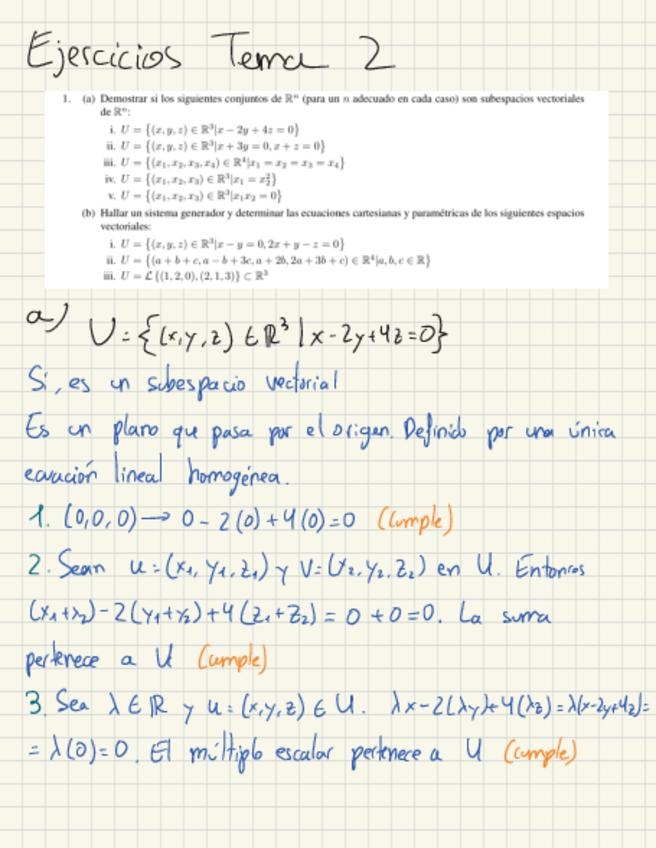 Ejercicios Tema 2
1. (a) Demostrar si los siguientes conjuntos de ℝⁿ (para un n adecuado en cada caso) son subespacios vectoriales
de ℝⁿ:
i. U = {(x, y, z) ∈ ℝ³|x − 2y + 4z = 0}
ii. U = {(x, y, z) ∈ ℝ³|x + 3y = 0, x + z = 0}
iii. U = {(x₁, x₂, x₃, x₄) ∈ ℝ⁴|x₁ = x₂ = x₃ = x₄}
iv. U = {(x₁, x₂, x₃) ∈ ℝ³|x₁ = x₂²}
v. U = {(x₁, x₂, x₃) ∈ ℝ³|x₁x₂ = 0}
(b) Hallar un sistema generador y determinar las ecuaciones cartesianas y paramétricas de los siguientes espacios
vectoriales:
i. U = {(x, y, z) ∈ ℝ³|x − y = 0, 2x + y − z = 0}
ii. U = {(a + b + c, a − b + 3c, a + 2b, 2a + 3b + c) ∈ ℝ⁴|a, b, c ∈ ℝ}
iii. U = ℒ {(1, 2, 0), (2, 1, 3)} ⊂ ℝ³
a) U = {(x, y, z) ∈ ℝ³ | x-2y+4z=0}
Si, es un subespacio vectorial
Es un plano que pasa por el origen. Definido por una única
ecuación lineal homogénea.
1. (0,0,0) → 0 - 2(0) + 4(0) = 0 (Cumple)
2. Sean u = (x₁, y₁, z₁) y V = (x₂, y₂, z₂) en U. Entonces
(x₁+x₂)-2(y₁+y₂)+4(z₁+z₂) = 0 + 0 = 0. La suma
pertenece a U (cumple)
3. Sea λ ∈ ℝ y u = (x,y,z) ∈ U. λx-2(λy)+4(λz)=λ(x-2y+4z)=
= λ(0)=0. El múltiplo escalar pertenece a U (cumple)